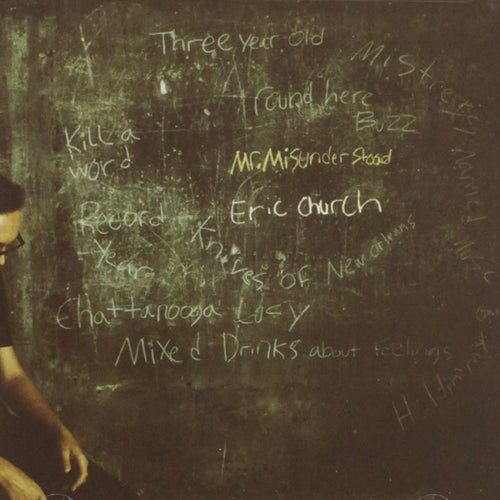 Three year old
round here
Buzz
Kill a
word
Mr. Misunderstood
Eric Church
Record
Year
Knives of New orleans
Chattanooga Lucy
Mixed Drinks about feelings
Mistress Named Music